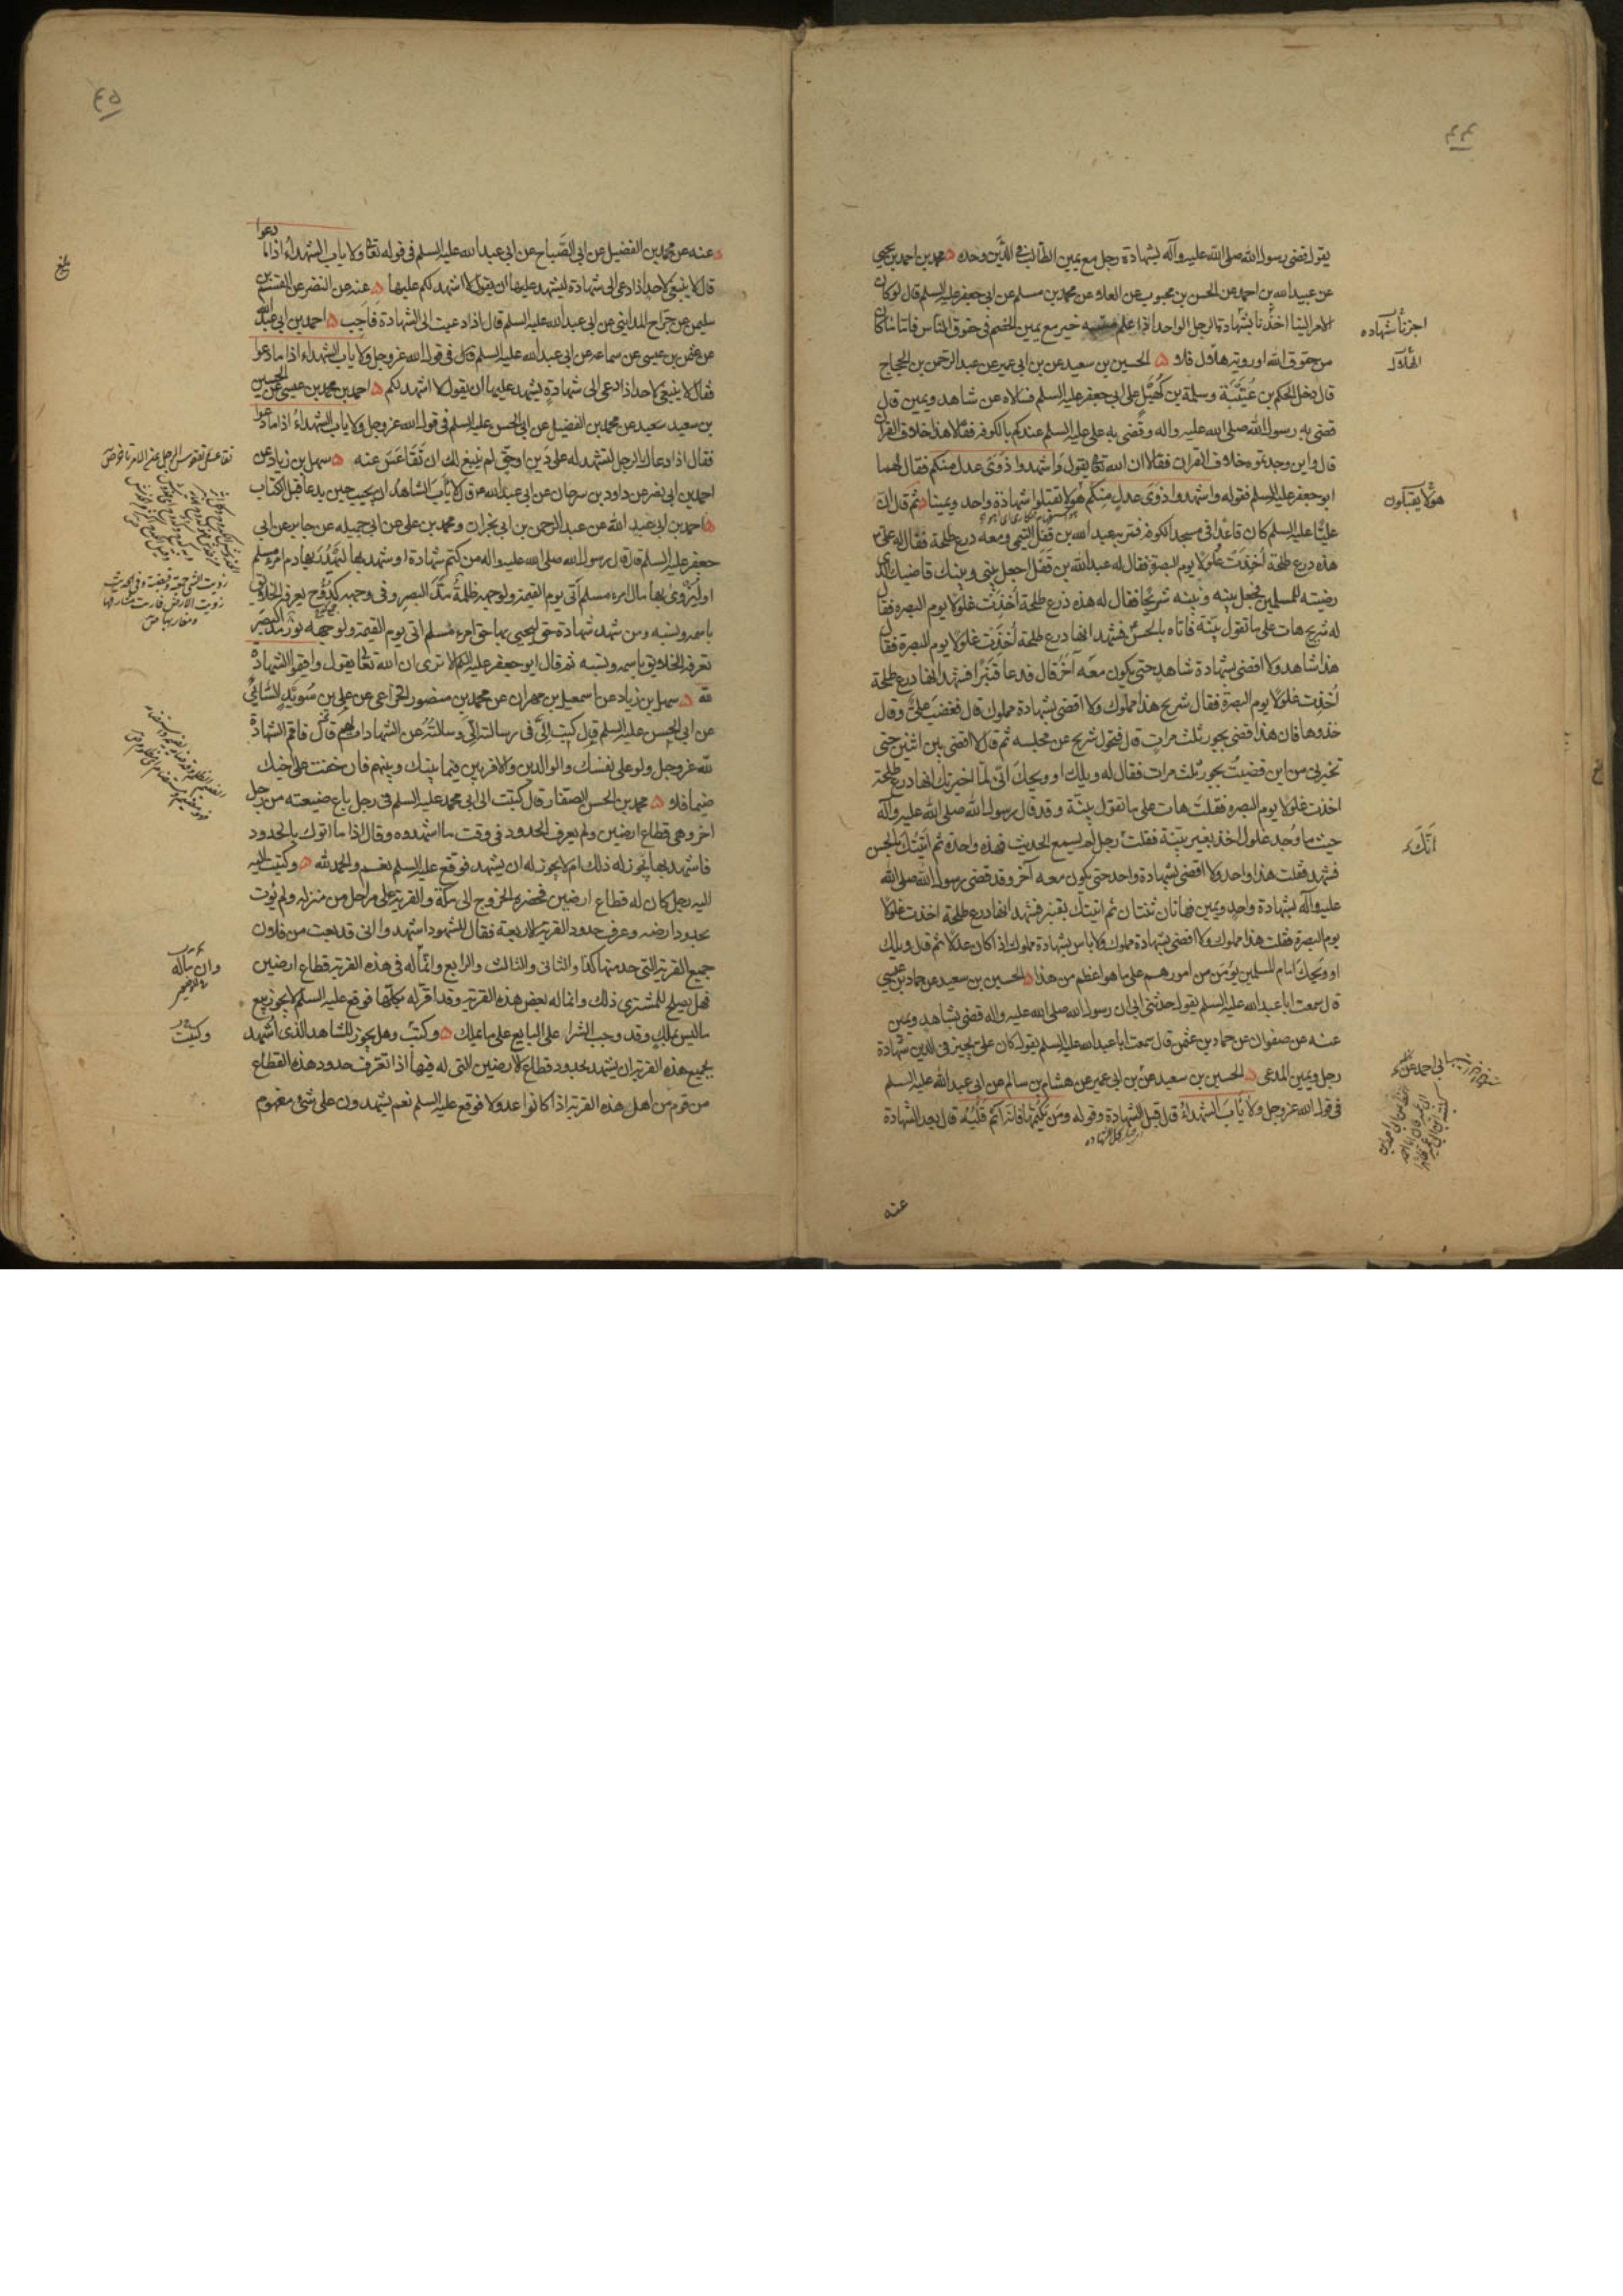 يقول قضى رسول الله صلى الله عليه وآله بشهادة رجل مع يمين الطالب في الدين وحده محمد بن احمد بن يحيى
عن عبيد الله بن احمد عن الحسن بن محبوب عن العلا عن محمد بن مسلم عن ابي جعفر عليه السلم قال لو كان
الامر الينا اخذنا بشهادة الرجل الواحد اذا علم منه خير مع يمين الخصم في حقوق الناس فاما ما كان
من حقوق الله او روية هلال فلا الحسين بن سعيد عن بن ابي عمير عن عبد الرحمن بن الحجاج
قال دخل الحكم بن عتيبة وسلمة بن كهيل على ابي جعفر عليه السلم فسالاه عن شاهد ويمين قال
قضى به رسول الله صلى الله عليه واله وقضى به علي عليه السلم عندكم بالكوفة فقالا هذا خلاف القران
قال واين وجدتموه خلاف القران فقالا ان الله تعالى يقول واشهدوا ذوى عدل منكم فقال لهما
ابو جعفر عليه السلم فقوله واشهدوا ذوى عدل منكم هو لا تقبلوا شهادة واحد ويمينا ثم قال ان
عليا عليه السلم كان قاعدا في مسجد الكوفة فمر به عبد الله بن قفل التيمي ومعه درع طلحة فقال له علي
هذه درع طلحة اخذت غلولا يوم البصرة فقال له عبد الله بن قفل اجعل بيني وبينك قاضيك الذي
رضيته للمسلمين فجعل بينه وبينه شريحا فقال له هذه درع طلحة اخذت غلولا يوم البصرة فقال
له شريح هات على ما تقول بينة فاتاه بالحسن فشهد انها درع طلحة اخذت غلولا يوم البصرة فقال
هذا شاهد ولا اقضى بشهادة شاهد حتى يكون معه آخر قال فدعا قنبرا فشهد انها درع طلحة
اخذت غلولا يوم البصرة فقال شريح هذا مملوك ولا اقضى بشهادة مملوك قال فغضب علي وقال
خذوها فان هذا قضى بجور ثلث مرات قال فتحول شريح عن مجلسه ثم قال لا اقضى بين اثنين حتى
تخبرني من اين قضيت بجور ثلث مرات فقال له ويلك او ويحك اني لما اخبرتك انها درع طلحة
اخذت غلولا يوم البصرة فقلت هات على ما تقول بينة وقد قال رسول الله صلى الله عليه وآله
حيث ما وجد غلول اخذ بغير بينة فقلت رجل لم يسمع الحديث فهذه واحدة ثم اتيتك بالحسن
فشهد فقلت هذا واحد ولا اقضى بشهادة واحد حتى يكون معه آخر وقد قضى رسول الله صلى الله
عليه وآله بشهادة واحد ويمين فهاتان ثنتان ثم اتيتك بقنبر فشهد انها درع طلحة اخذت غلولا
يوم البصرة فقلت هذا مملوك ولا اقضى بشهادة مملوك ولا باس بشهادة مملوك اذا كان عدلا ثم قال ويلك
او ويحك امام المسلمين يؤمن من امورهم على ما هو اعظم من هذا الحسين بن سعيد عن حماد بن عيسى
قال سمعت ابا عبد الله عليه السلم يقول حدثني ابي ان رسول الله صلى الله عليه واله قضى بشاهد ويمين
عنه عن صفوان عن حماد بن عثمن قال سمعت ابا عبد الله عليه السلم يقول كان علي يجيز في الدين شهادة
رجل ويمين المدعى الحسين بن سعيد عن بن ابي عمير عن هشام بن سالم عن ابي عبد الله عليه السلم
في قول الله عز وجل ولا يأب الشهداء قال قبل الشهادة وقوله ومن يكتمها فانه اثم قلبه قال بعد الشهادة
عنه
اجزنا شهاده
الهلال
هولا يقبلون
اتك
٤٥
بلغ
دعوا
عنه عن محمد بن الفضيل عن ابي الصباح عن ابي عبد الله عليه السلم في قوله تعالى ولا ياب الشهداء اذا ما
قال لا ينبغى لاحد اذا دعى الى شهادة ليشهد عليها ان يقول لا اشهد لكم عليها عنه عن النضر عن القسم بن
سليمن عن جراح المدايني عن ابي عبد الله عليه السلم قال اذا دعيت الى الشهادة فاجب احمد بن ابي عبد الله
عن عثمن بن عيسى عن سماعه عن ابي عبد الله عليه السلم قال في قول الله عز وجل ولا ياب الشهداء اذا ما دعوا
فقال لا ينبغى لاحد اذا دعى الى شهادة يشهد عليها ان يقول لا اشهد لكم احمد بن محمد بن عيسى عن الحسين
بن سعيد عن محمد بن الفضيل عن ابي الحسن عليه السلم في قول الله عز وجل ولا ياب الشهداء اذا ما دعوا
فقال اذا دعاك الرجل لتشهد له على دين او حق لم ينبغ لك ان تقاعس عنه سهل بن زياد عن
احمد بن ابي نصر عن داود بن سرحان عن ابي عبد الله قال لا يأب الشاهد ان يجيب حين يدعا قبل الكتاب
احمد بن ابي عبد الله عن عبد الرحمن بن ابي نجران ومحمد بن علي عن ابي جميله عن جابر عن ابي
جعفر عليه السلم قال قال رسول الله صلى الله عليه واله من كتم شهادة او شهد بها ليهدر بها دم امرء مسلم
او ليزوى بها مال امرء مسلم اتى يوم القيمة ولوجهه ظلمة مد البصر وفي وجهه كدوح يعرفه الخلايق
باسمه ونسبه ومن شهد شهادة حق ليحيى بها حق امرء مسلم اتى يوم القيمة ولوجهه نور مد البصر
تعرفه الخلايق باسمه ونسبه ثم قال ابو جعفر عليه السلم الا ترى ان الله تعالى يقول واقيموا الشهادة
لله سهل بن زياد عن اسمعيل بن مهران عن محمد بن منصور الخزاعى عن علي بن سويد السائي
عن ابي الحسن عليه السلم قال كتب الي في رسالته الي وسالته عن الشهادات لهم قال فاقم الشهادة
لله عز وجل ولو على نفسك والوالدين والاقربين فيما بينك وبينهم فان خفت على اخيك
ضيما فلا محمد بن الحسن الصفار قال كتبت الى ابي محمد عليه السلم في رجل باع ضيعته من رجل
اخر وهي قطاع ارضين ولم يعرف الحدود في وقت ما اشهده وقال اذا ما اتوك بالحدود
فاشهد بها يجوز له ذلك ام لا يجوز له ان يشهد فوقع عليه السلم نعم والحمد لله وكتبت اليه
اليه رجل كان له قطاع ارضين فحضره الخروج الى مكة والقرية على مراحل من منزله ولم يؤت
بحدود ارضه وعرف حدود القرية الاربعة فقال للشهود اشهدوا انى قد بعت من فلان
جميع القرية التي حد منها كذا والثانى والثالث والرابع وانما له في هذه القرية قطاع ارضين
فهل يصلح للمشترى ذلك وانما له بعض هذه القرية وقد اقر له بكلها فوقع عليه السلم لا يجوز بيع
ما ليس يملك وقد وجب الشرا على البايع على ما يملك وكتب وهل يجوز للشاهد الذى اشهد
بجميع هذه القرية ان يشهد بحدود قطاع الارضين التي له فيها اذا تعرف حدود هذه القطاع
من قوم من اهل هذه القرية اذا كانوا عدولا فوقع عليه السلم نعم يشهدون على شئ مفهوم
وكتبت